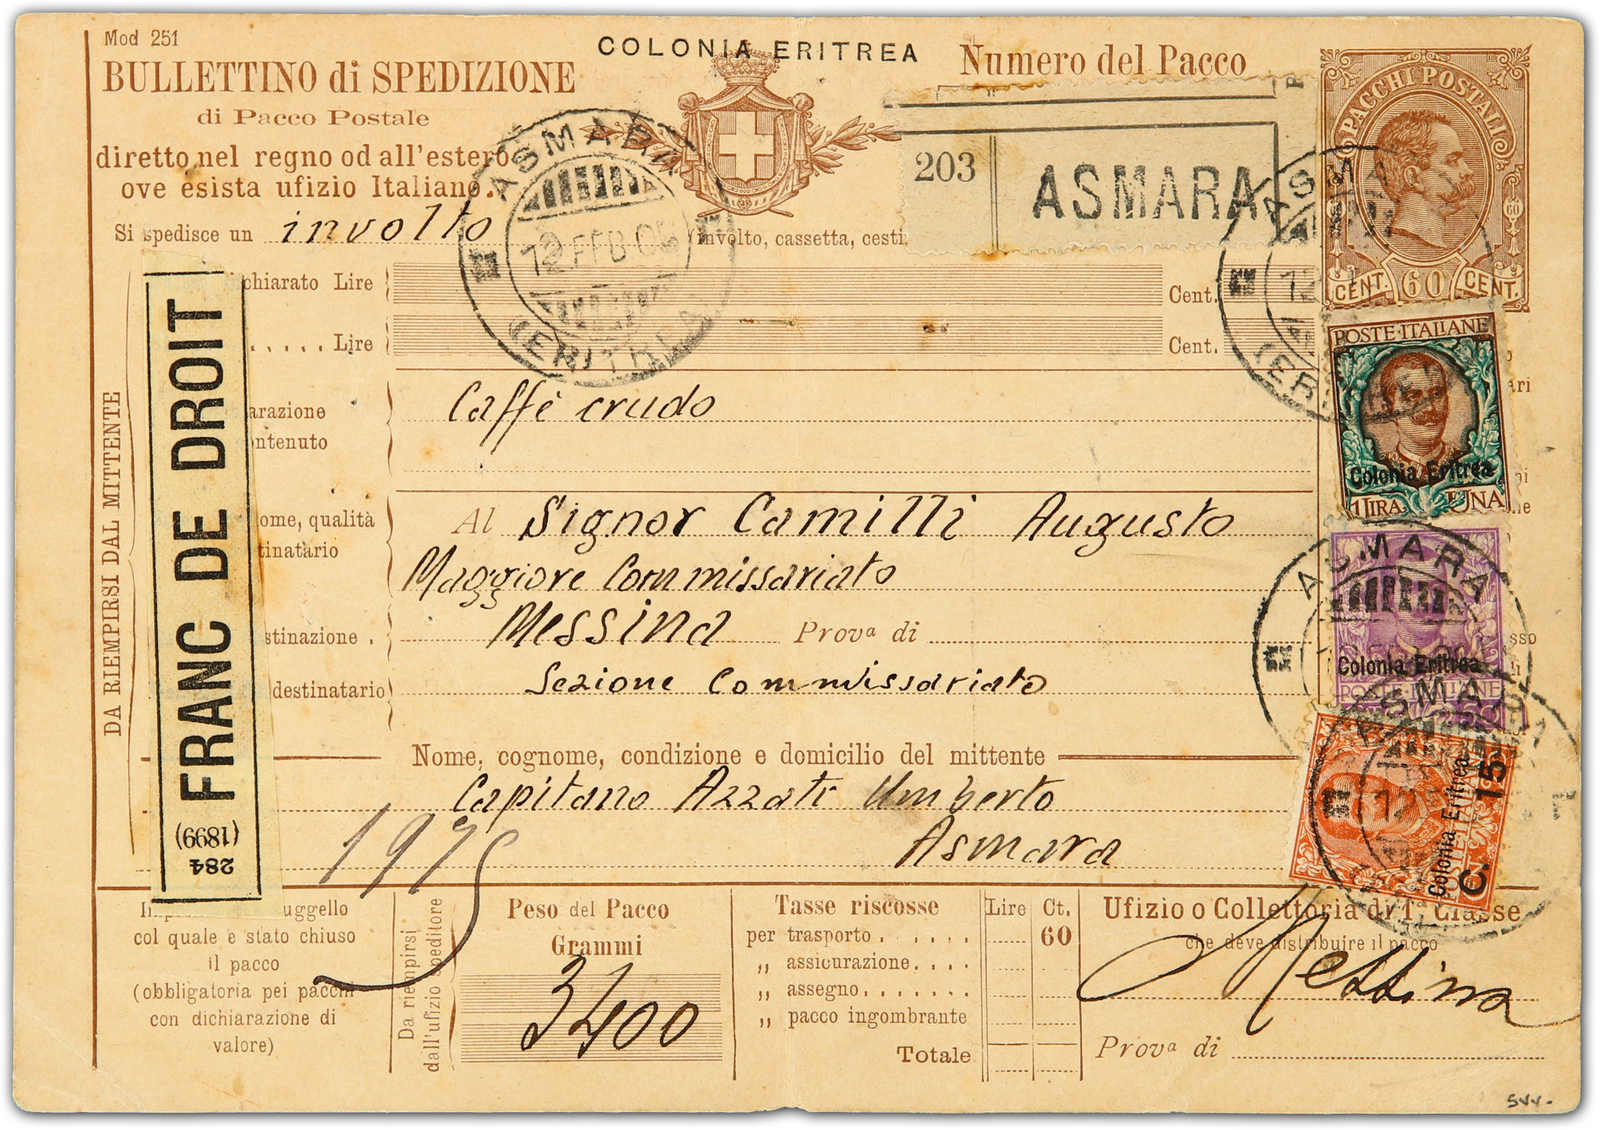 Mod 251
COLONIA ERITREA
BULLETTINO di SPEDIZIONE
di Pacco Postale
diretto nel regno od all'estero
ove esista ufizio Italiano.
Numero del Pacco
203 ASMARA
PACCHI POSTALI
60
CENT. 60 CENT.
ASMARA
12 FEB 05
(ERITREA)
ASMARA
(ERITREA)
Si spedisce un involto involto, cassetta, cesti
chiarato Lire Cent.
Lire Cent.
POSTE·ITALIANE
Colonia Eritrea
1 LIRA UNA
arazione
ntenuto
Caffè crudo
ome, qualità
tinatario
Al Signor Camilli Augusto
Maggiore Commissariato
stinazione . Messina Provª di
destinatario Sezione Commissariato
ASMARA
Colonia Eritrea
POSTE·ITALIANE
ASMARA
Colonia Eritrea
C. 15
Nome, cognome, condizione e domicilio del mittente
Capitano Azzati Umberto
Asmara
DA RIEMPIRSI DAL MITTENTE
FRANC DE DROIT
284
(1899)
1975
uggello
col quale è stato chiuso
il pacco
(obbligatoria pei pacchi
con dichiarazione di
valore)
Da riempirsi
dall'ufizio speditore
Peso del Pacco
Grammi
3400
Tasse riscosse Lire Ct.
per trasporto . . . . . . 60
„ assicurazione. . . .
„ assegno. . . . . . .
„ pacco ingombrante
Totale
Ufizio o Collettoria di 1. Classe
che deve distribuire il pacco
Messina
Provª di